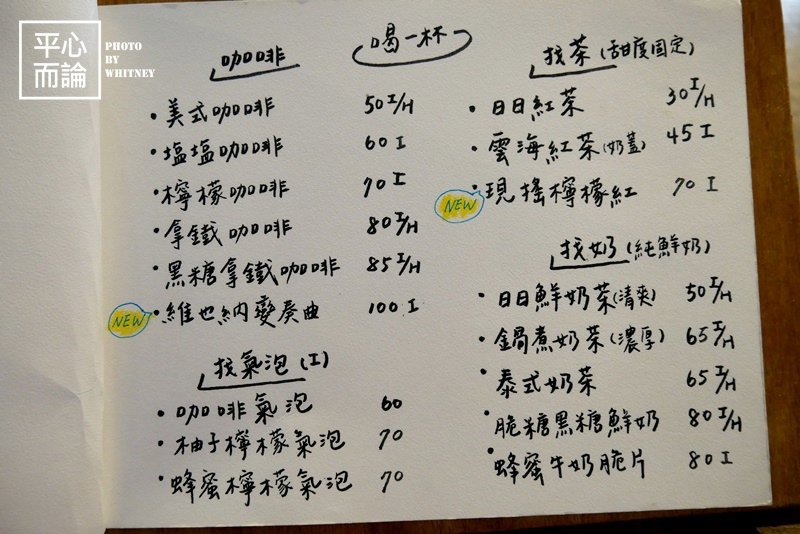 平心
而論
PHOTO
BY
WHITNEY
喝一杯
咖啡
・美式咖啡 50 I/H
・塩塩咖啡 60 I
・檸檬咖啡 70 I
・拿鐵咖啡 80 I/H
・黑糖拿鐵咖啡 85 I/H
NEW ・維也納變奏曲 100 I
找氣泡(I)
・咖啡氣泡 60
・柚子檸檬氣泡 70
・蜂蜜檸檬氣泡 70
找茶(甜度固定)
・日日紅茶 30 I/H
・雲海紅茶(奶蓋) 45 I
NEW ・現搖檸檬紅 70 I
找奶(純鮮奶)
・日日鮮奶茶(清爽) 50 I/H
・鍋煮奶茶(濃厚) 65 I/H
・泰式奶茶 65 I/H
・脆糖黑糖鮮奶 80 I/H
・蜂蜜牛奶脆片 80 I